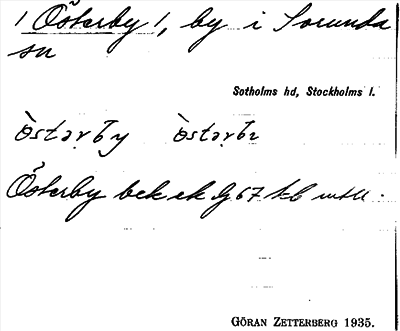 / Österby /, by i Sorunda
sn
Sotholms hd, Stockholms l.
òstərby òstərbı
Österby bck ek
GÖRAN ZETTERBERG 1935.